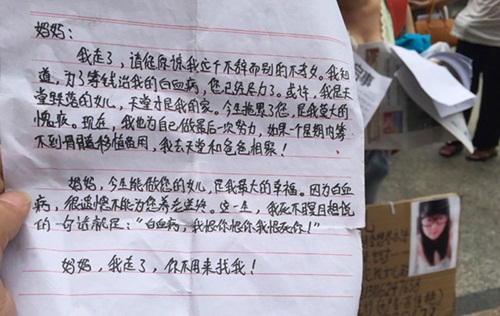 妈妈：
我走了，请您原谅我这个不辞而别的不孝女。我知
道，为了筹钱治我的白血病，您已经尽力了。或许，我是天
堂野落的女儿，天堂才是我的家。今生拖累了您，是我莫大的
愧疚。现在，我也为自己做最后一次努力，如果一个星期内筹
不到骨髓移植费用，我去天堂和爸爸相聚！
妈妈，今生能做您的女儿，是我最大的幸福。因为白血
病，很遗憾不能为您养老送终。这一生，我死不瞑目想说
的一句话就是：“白血病，我恨你恨你我恨死你！”
妈妈，我走了，你不用来找我！